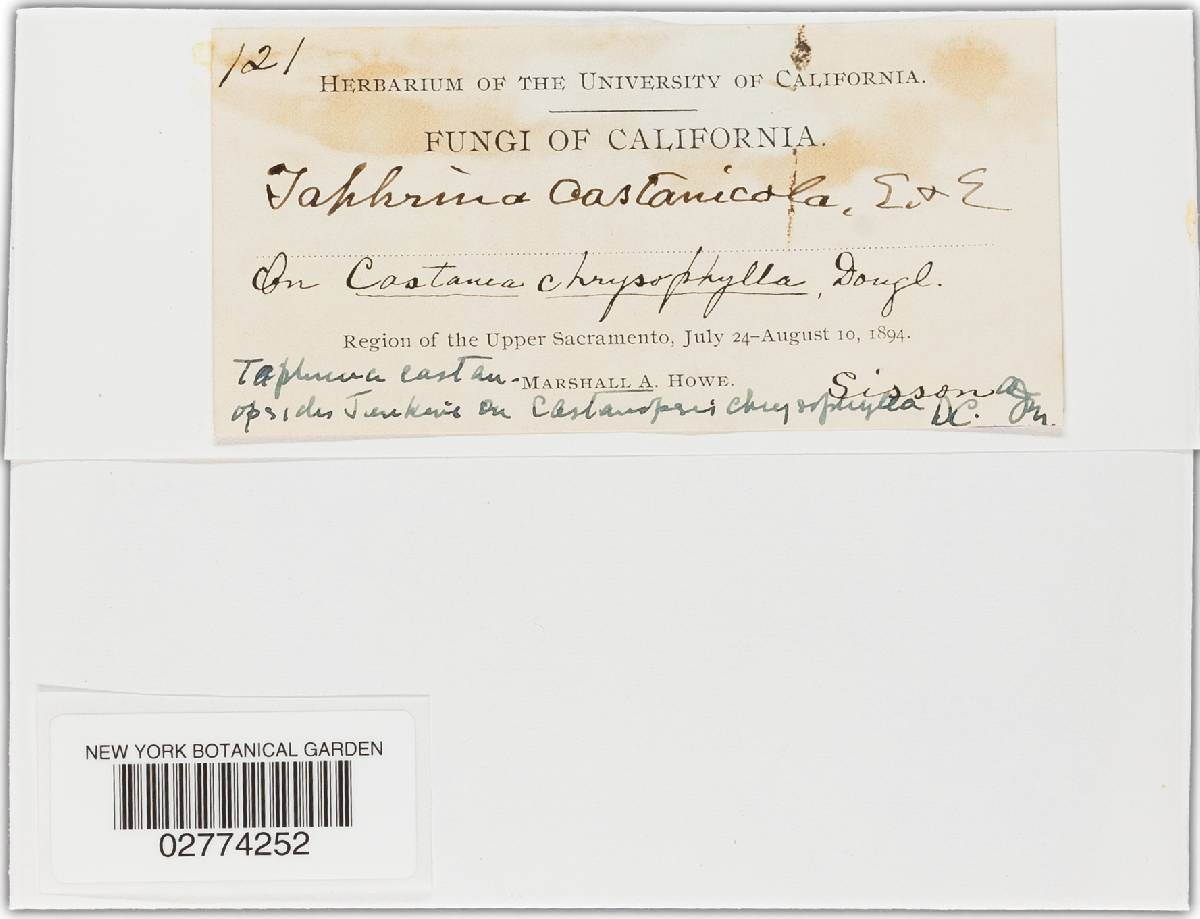 121
HERBARIUM OF THE UNIVERSITY OF CALIFORNIA.
FUNGI OF CALIFORNIA.
Taphrina castanicola, E. & E
On Castanea chrysophylla, Dougl.
Region of the Upper Sacramento, July 24–August 10, 1894.
Taphrina castan-
MARSHALL A. HOWE.
Sisson
opsidis Jenkins on Castanopsis chrysophylla DC.
NEW YORK BOTANICAL GARDEN
02774252